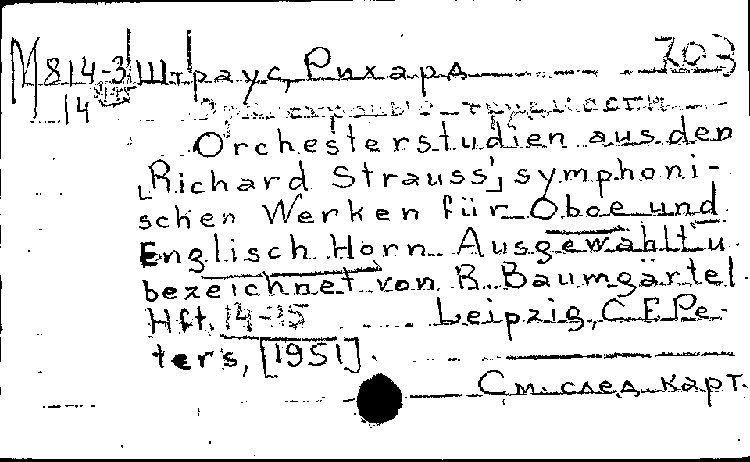 М 814-3 Штраус, Рихард 703
14 Оркестровые трудности
Orchesterstudien aus den
[Richard Strauss'] symphoni-
schen Werken für Oboe und
Englisch Horn. Ausgewählt u
bezeichnet von R. Baumgärtel
Hft. 14-15 Leipzig, C.F. Pe-
ters, [1951].
См. след. карт.